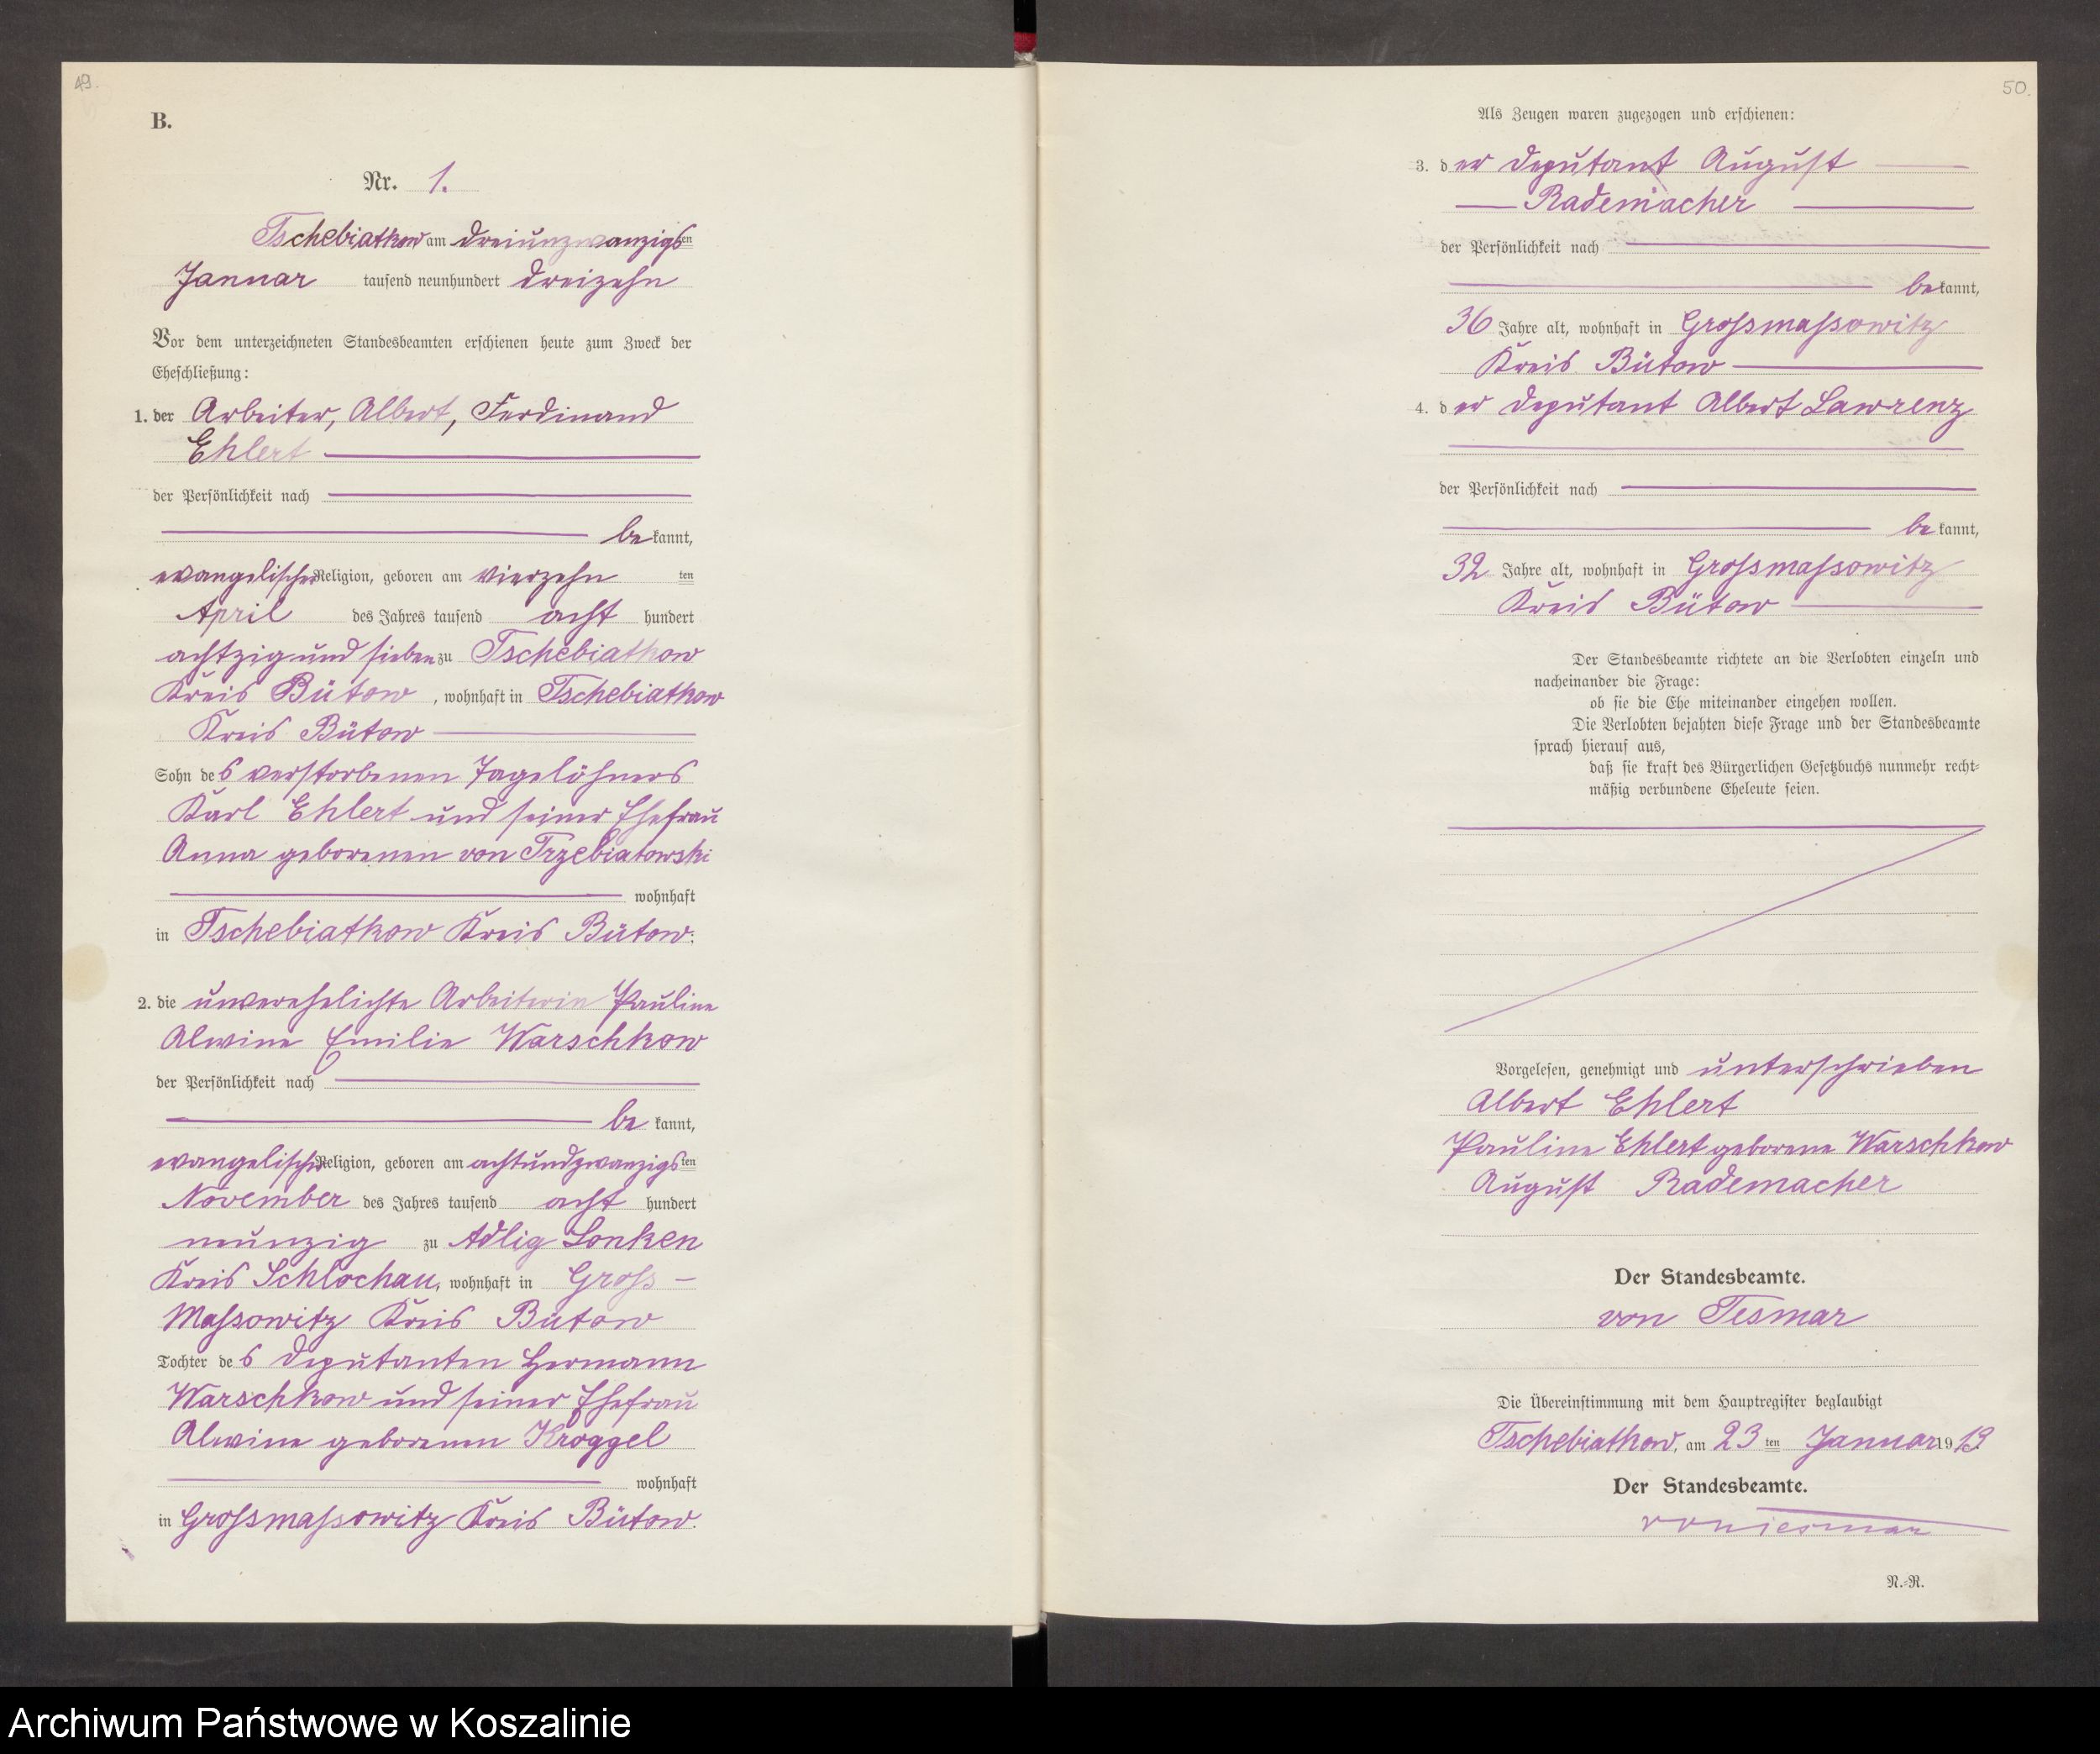 49.
B.
Nr. 1.
Tschebiatkow am dreiunzwanzigsten
Januar tausend neunhundert dreizehn
Vor dem unterzeichneten Standesbeamten erschienen heute zum Zweck der
Eheschließung:
1. der Arbeiter, Albert, Ferdinand
Ehlert
der Persönlichkeit nach
be kannt,
evangelischer Religion, geboren am vierzehn ten
April des Jahres tausend acht hundert
achtzig und sieben zu Tschebiatkow
Kreis Bütow, wohnhaft in Tschebiatkow
Kreis Bütow
Sohn des verstorbenen Tagelöhners
Karl Ehlert und seiner Ehefrau
Anna geborenen von Trzebiatowski
wohnhaft
in Tschebiatkow Kreis Bütow.
2. die unverehelichte Arbeiterin Pauline
Alwine Emilie Warschkow
der Persönlichkeit nach
be kannt,
evangelischer Religion, geboren am achtundzwanzigsten
November des Jahres tausend acht hundert
neunzig zu Adlig Lonken
Kreis Schlochau, wohnhaft in Gross-
Massowitz Kreis Butow
Tochter des Deputanten Hermann
Warschkow und seiner Ehefrau
Alwine geborenen Kroggel
wohnhaft
in Grossmassowitz Kreis Bütow.
50.
Als Zeugen waren zugezogen und erschienen:
3. der Deputant August
Rademacher
der Persönlichkeit nach
be kannt,
36 Jahre alt, wohnhaft in Grossmassowitz
Kreis Bütow
4. der Deputant Albert Lawrenz
der Persönlichkeit nach
be kannt,
32 Jahre alt, wohnhaft in Grossmassowitz
Kreis Bütow
Der Standesbeamte richtete an die Verlobten einzeln und
nacheinander die Frage:
ob sie die Ehe miteinander eingehen wollen.
Die Verlobten bejahten diese Frage und der Standesbeamte
sprach hierauf aus,
daß sie kraft des Bürgerlichen Gesetzbuchs nunmehr recht-
mäßig verbundene Eheleute seien.
Vorgelesen, genehmigt und unterschrieben
Albert Ehlert
Pauline Ehlert geborene Warschkow
August Rademacher
Der Standesbeamte.
von Tesmar
Die Übereinstimmung mit dem Hauptregister beglaubigt
Tschebiatkow, am 23 ten Januar 1913
Der Standesbeamte.
von Tesmar
N.-R.
Archiwum Państwowe w Koszalinie